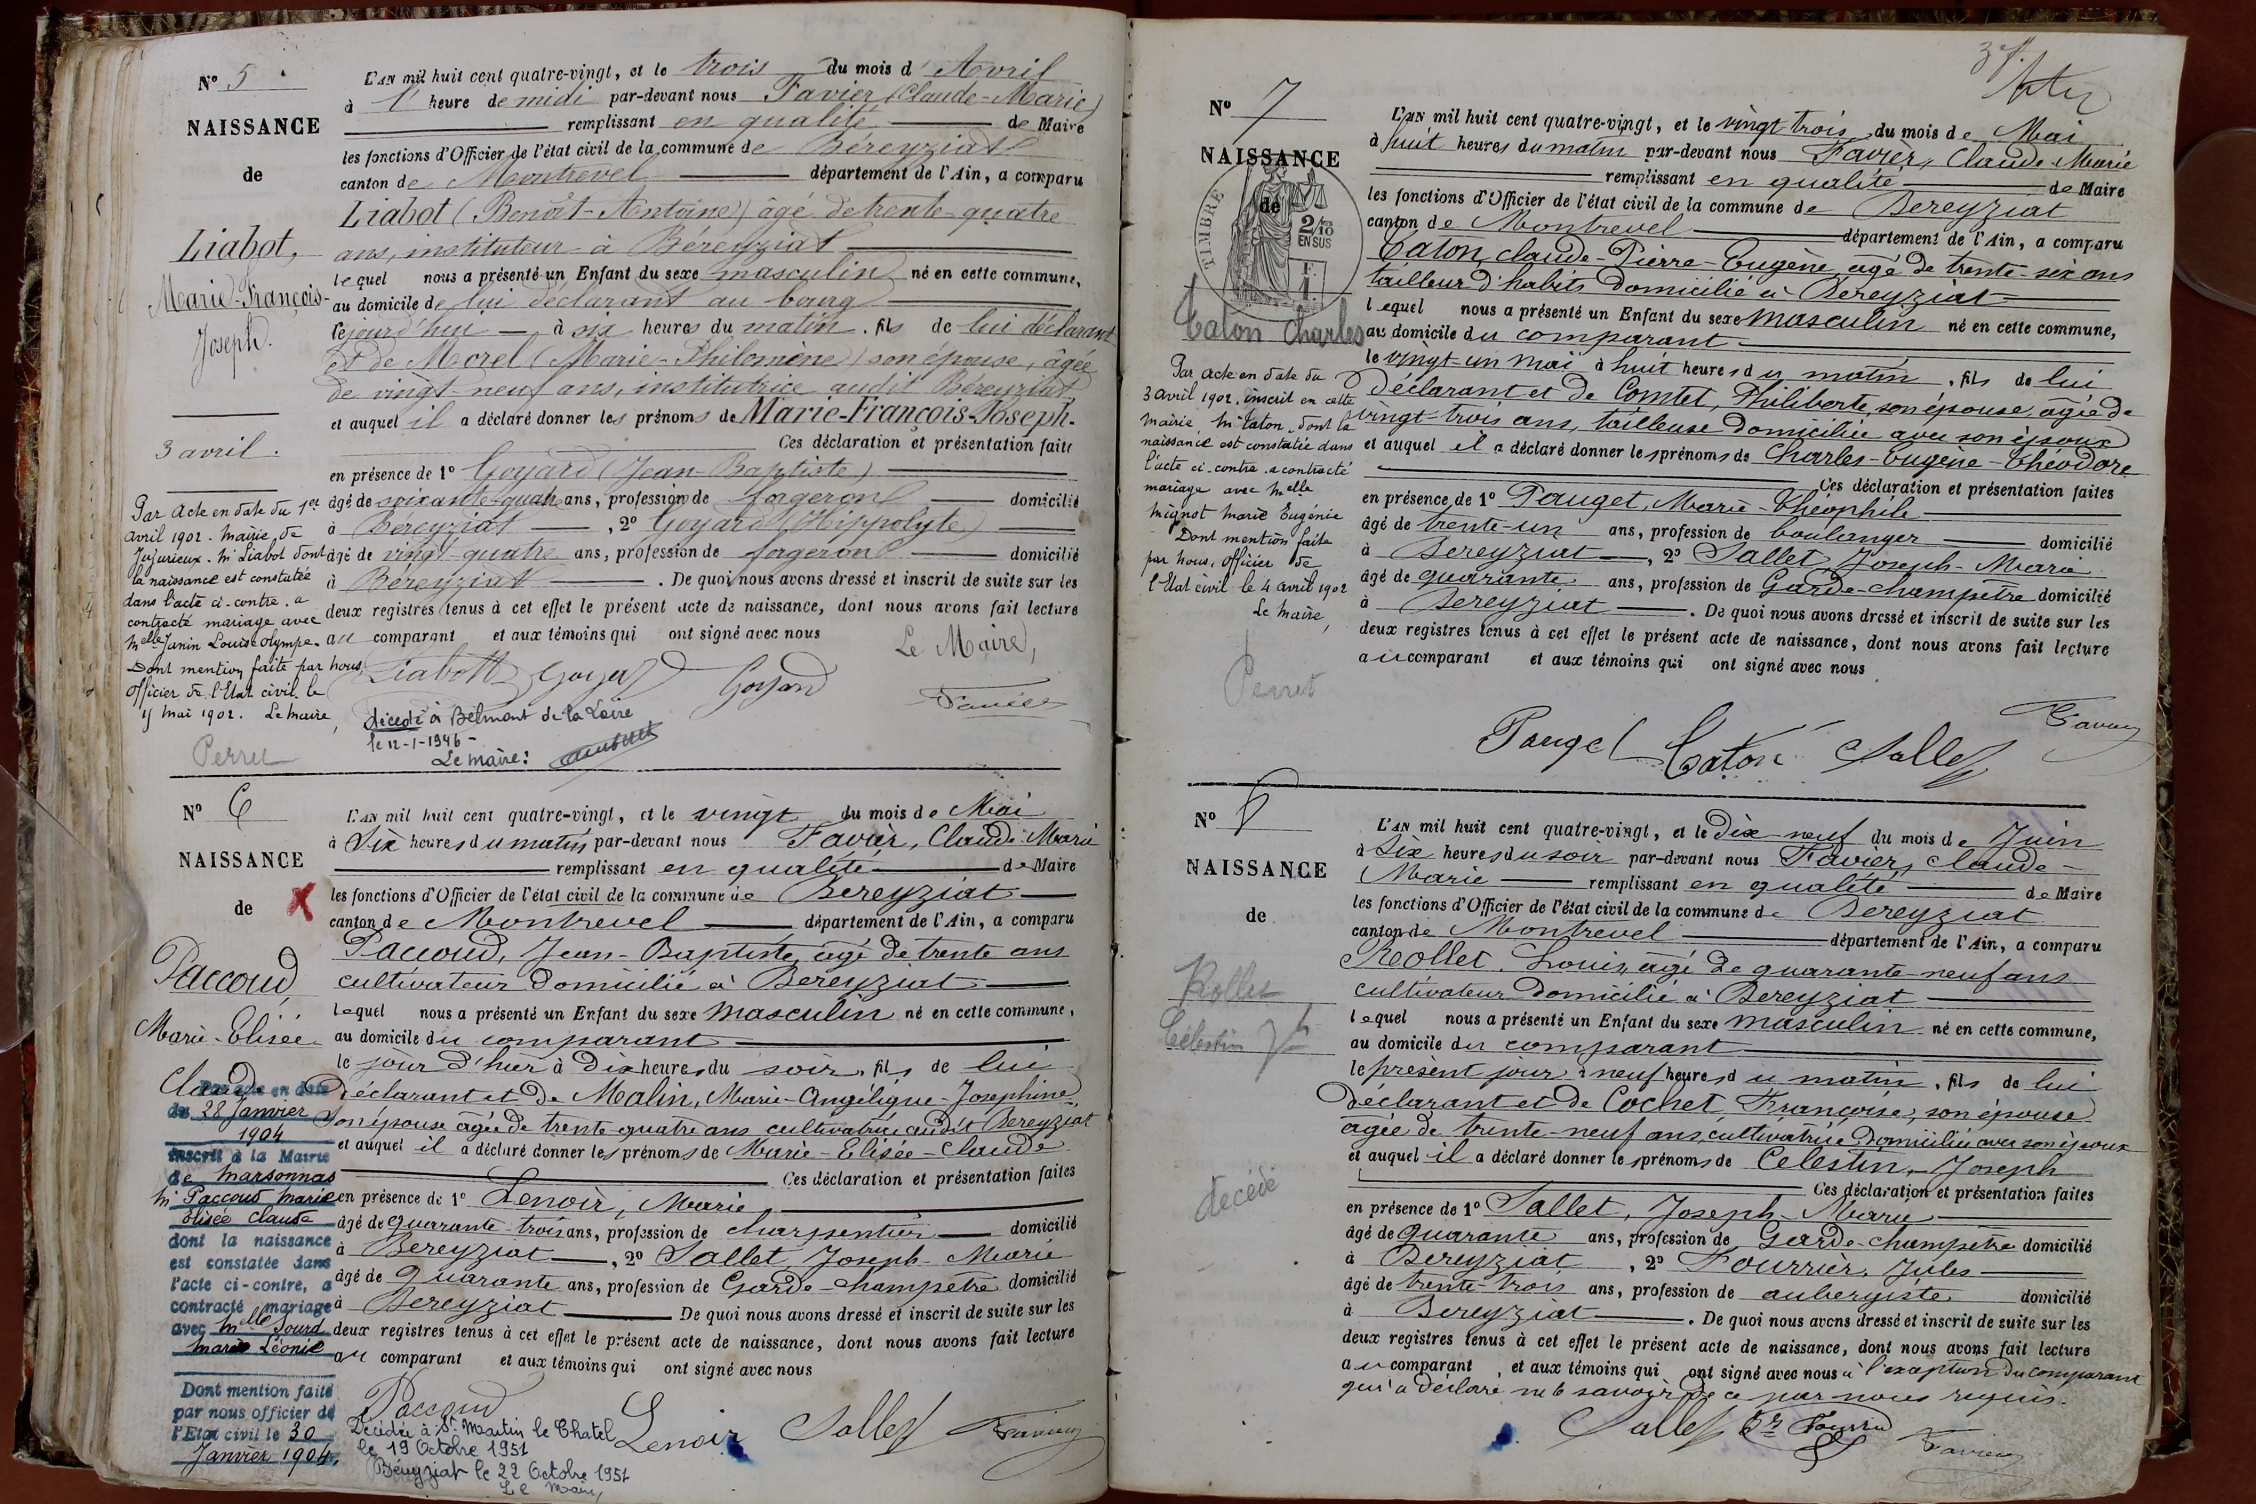 N° 5
NAISSANCE
de
Liabot,
Marie-François-
Joseph.
3 avril.
Par Acte en date du 1er
avril 1902. mairie de
Jujurieux. Mr Liabot dont
la naissance est constatée
dans l'acte ci-contre. a
contracté mariage avec
Melle Janin Louise Olympe.
Dont mention faite par nous
officier de l'Etat civil le
mai 1902. Le maire,
Perret
L'AN mil huit cent quatre-vingt, et le trois du mois d'Avril
à 1 heure de midi par-devant nous Favier (Claude-Marie)
remplissant en qualité de Maire
les fonctions d'Officier de l'état civil de la commune de Béreyziat
canton de Montrevel département de l'Ain, a comparu
Liabot (Benoît-Antoine) âgé de trente-quatre
ans, instituteur à Béréyziat
lequel nous a présenté un Enfant du sexe masculin né en cette commune,
au domicile de lui déclarant au bourg
cejourd'hui à six heures du matin. fils de lui déclarant
et de Morel (Marie-Philomène) son épouse, âgée
de vingt-neuf ans, institutrice audit Béreyziat
et auquel il a déclaré donner les prénoms de Marie-François-Joseph.
Ces déclaration et présentation faite
en présence de 1° Goyard (Jean-Baptiste)
âgé de soixante-quatre ans, profession de forgeron domicilié
à Béreyziat, 2° Goyard (Hippolyte)
âgé de vingt-quatre ans, profession de forgeron domicilié
à Béreyziat. De quoi nous avons dressé et inscrit de suite sur les
deux registres tenus à cet effet le présent acte de naissance, dont nous avons fait lecture
au comparant et aux témoins qui ont signé avec nous
Le Maire,
Liabot Goyard Goyard Favier
décédé à Belmont de la Loire
le 12-1-1946 -
Le maire:
N° 6
NAISSANCE
de X
Paccoud
Marie-Elisée
Claude
Par acte en date
du 28 Janvier
1904
inscrit à la Mairie
de Marsonnas
Mr Paccoud Marie
Elisée Claude
dont la naissance
est constatée dans
l'acte ci-contre, a
contracté mariage
avec Melle Sourd
Marie Léonie
Dont mention faite
par nous officier de
l'Etat civil le 30
Janvier 1904.
L'AN mil huit cent quatre-vingt, et le vingt du mois de Mai
à Six heures du matin par-devant nous Favier, Claude Marie
remplissant en qualité de Maire
les fonctions d'Officier de l'état civil de la commune de Bereyziat
canton de Montrevel département de l'Ain, a comparu
Paccoud, Jean-Baptiste, âgé de trente ans
cultivateur domicilié à Bereyziat
lequel nous a présenté un Enfant du sexe masculin né en cette commune,
au domicile du comparant
le jour d'hier à Dix heures du soir. fils de lui
déclarant et de Malin, Marie-Angélique-Josephine
son épouse âgée de trente quatre ans cultivatrice audit Bereyziat
et auquel il a déclaré donner les prénoms de Marie-Elisée-Claude
Ces déclaration et présentation faites
en présence de 1° Lenoir, Marie
âgé de quarante-trois ans, profession de charpentier domicilié
à Bereyziat, 2° Sallet, Joseph-Marie
âgé de quarante ans, profession de Garde-champêtre domicilié
à Bereyziat De quoi nous avons dressé et inscrit de suite sur les
deux registres tenus à cet effet le présent acte de naissance, dont nous avons fait lecture
au comparant et aux témoins qui ont signé avec nous
Paccoud Lenoir Sallet Favier
Décédée à St Martin le Chatel
le 19 Octobre 1951
Béreyziat le 22 Octobre 1951
Le Maire,
37.
N° 7
NAISSANCE
de
TIMBRE
2/10
EN SUS
Caton Charles
Par Acte en date du
3 avril 1902, inscrit en cette
mairie, Mr Caton, dont la
naissance est constatée dans
l'acte ci-contre, a contracté
mariage avec Melle
Mignot Marie Eugénie
Dont mention faite
par nous, officier de
l'Etat civil le 4 avril 1902
Le Maire,
Perret
L'AN mil huit cent quatre-vingt, et le vingt trois du mois de Mai
à huit heures du matin par-devant nous Favier, Claude Marie
remplissant en qualité de Maire
les fonctions d'Officier de l'état civil de la commune de Bereyziat
canton de Montrevel département de l'Ain, a comparu
Caton, Claude-Pierre-Eugène âgé de trente-six ans
tailleur d'habits domicilié à Bereyziat
lequel nous a présenté un Enfant du sexe masculin né en cette commune,
au domicile du comparant
le vingt-un mai à huit heures du matin. fils de lui
déclarant et de Comtet, Philiberte, son épouse, âgée de
vingt-trois ans, tailleuse domiciliée avec son époux
et auquel il a déclaré donner les prénoms de Charles-Eugène-Théodore
Ces déclaration et présentation faites
en présence de 1° Pauget, Marie-Théophile
âgé de trente-un ans, profession de boulanger domicilié
à Bereyziat, 2° Sallet, Joseph-Marie
âgé de quarante ans, profession de Garde-champêtre domicilié
à Bereyziat. De quoi nous avons dressé et inscrit de suite sur les
deux registres tenus à cet effet le présent acte de naissance, dont nous avons fait lecture
au comparant et aux témoins qui ont signé avec nous
Pauget Caton Sallet Favier
N° 8
NAISSANCE
de
Rollet
Célestin Jh
décédé
L'AN mil huit cent quatre-vingt, et le Dix-neuf du mois de Juin
à Six heures du soir par-devant nous Favier, Claude-
Marie remplissant en qualité de Maire
les fonctions d'Officier de l'état civil de la commune de Bereyziat
canton de Montrevel département de l'Ain, a comparu
Rollet. Louis, âgé de quarante-neuf ans
cultivateur domicilié à Bereyziat
lequel nous a présenté un Enfant du sexe masculin né en cette commune,
au domicile du comparant
le présent jour à neuf heures du matin. fils de lui
déclarant et de Cochet, Françoise, son épouse
âgée de trente-neuf ans, cultivatrice, domiciliée avec son époux
et auquel il a déclaré donner les prénoms de Célestin, Joseph
Ces déclaration et présentation faites
en présence de 1° Sallet, Joseph-Marie
âgé de quarante ans, profession de Garde-champêtre domicilié
à Bereyziat, 2° Fourrier, Jules
âgé de trente-trois ans, profession de aubergiste domicilié
à Bereyziat. De quoi nous avons dressé et inscrit de suite sur les
deux registres tenus à cet effet le présent acte de naissance, dont nous avons fait lecture
au comparant et aux témoins qui ont signé avec nous à l'exception du comparant
qui a déclaré ne le savoir de ce par nous requis.
Sallet Favier